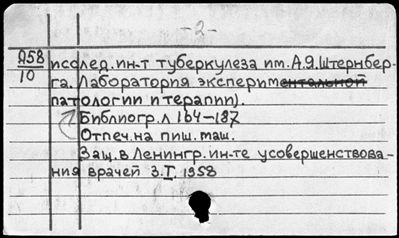 - 2 -
А58 исслед. ин-т туберкулеза им. А.Я. Штернбер-
10 га. Лаборатория экспериментальной
патологии и терапии).
Библиогр. л 164-187
Отпеч. на пиш. маш.
Защ. в Ленингр. ин-те усовершенствова-
ния врачей 3.I 1958